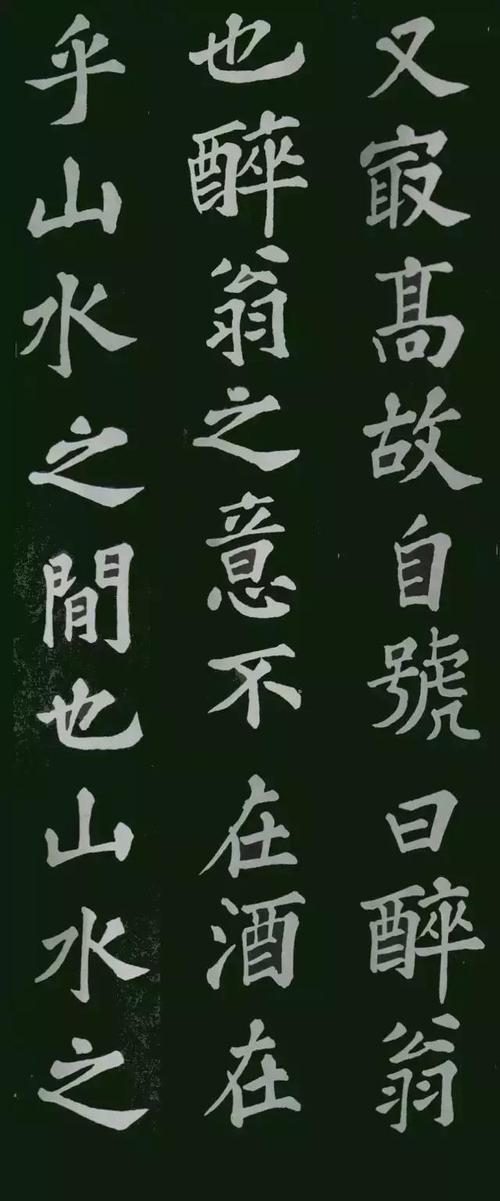 又㝡高故自號曰醉翁
也醉翁之意不在酒在
乎山水之間也山水之